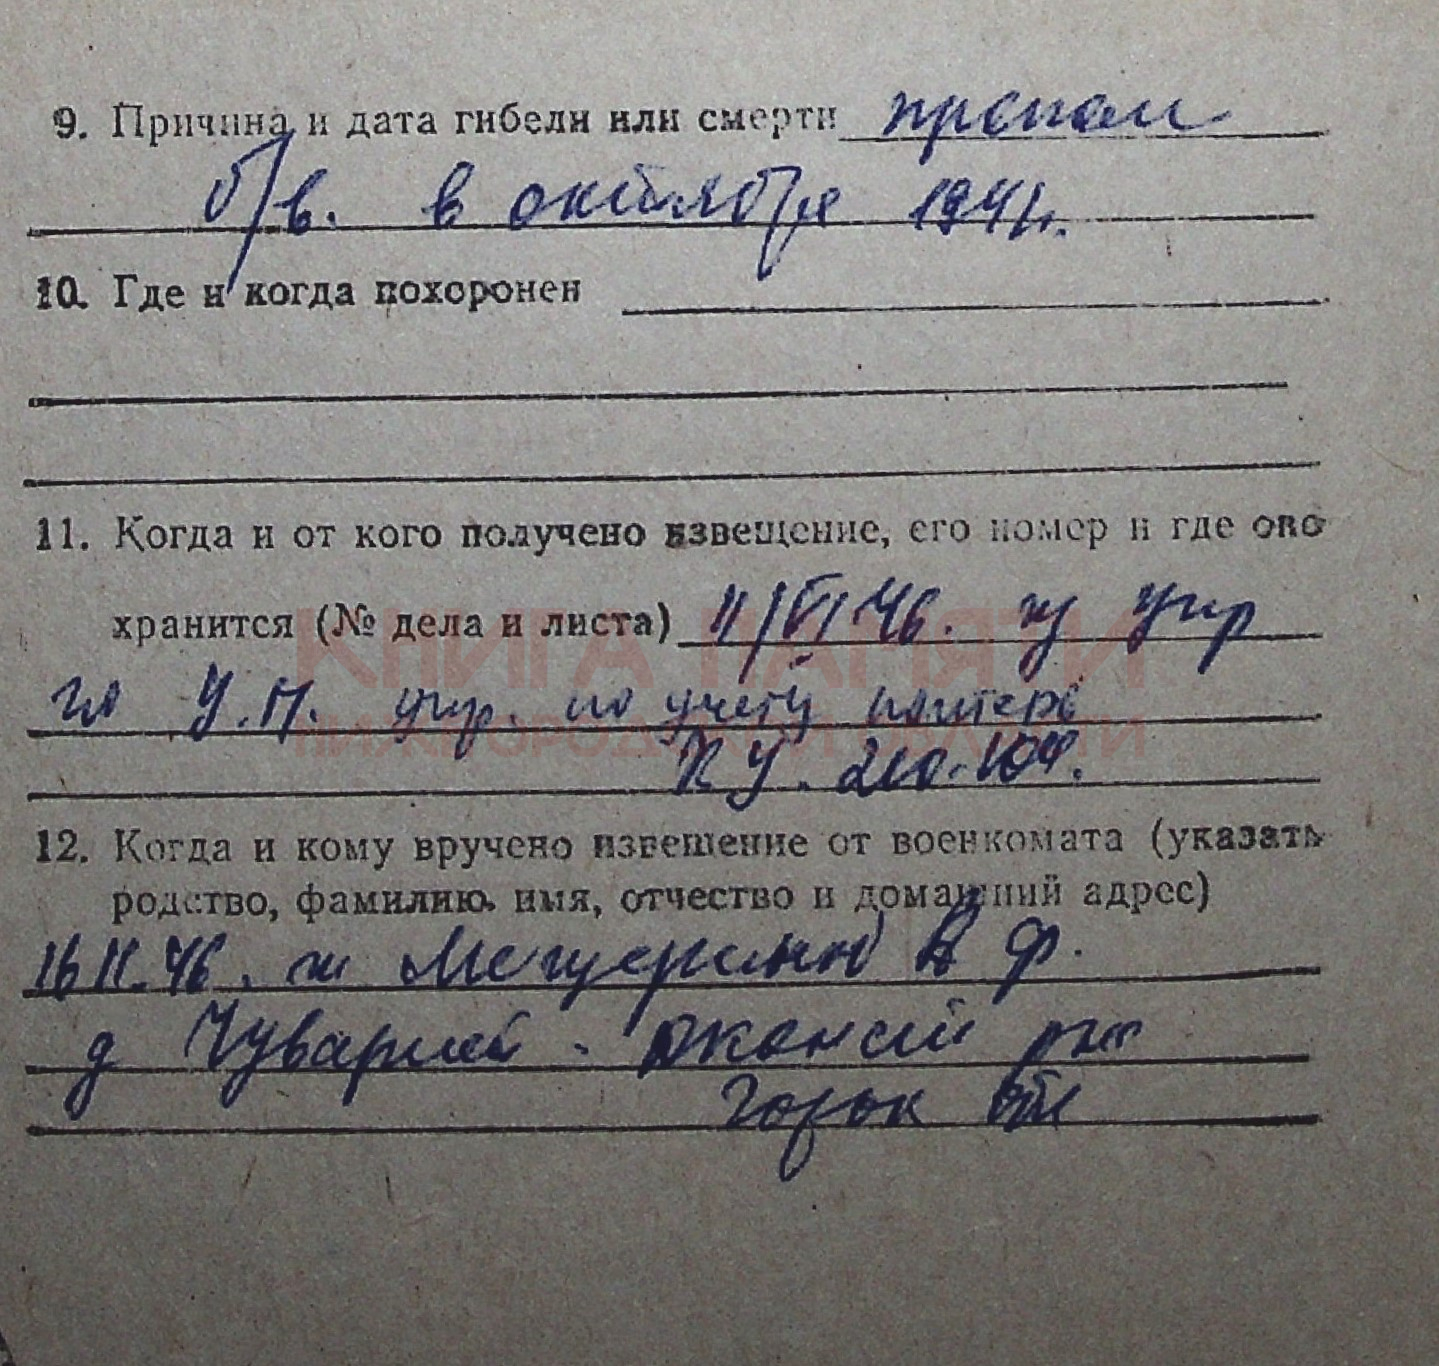 9. Причина и дата гибели или смерти пропал
б/в. в октября 1941г.
10. Где и когда похоронен
11. Когда и от кого получено извещение, его номер и где оно
хранится (№ дела и листа) 11/VI 46. из упр
У.П. упр. по учету потерь
КУ.
12. Когда и кому вручено извещение от военкомата (указать
родство, фамилию, имя, отчество и домашний адрес)
46. Ф.
д Чуварлей
Горьк обл
КНИГА ПАМЯТИ
НИЖЕГОРОДСКОЙ ОБЛАСТИ